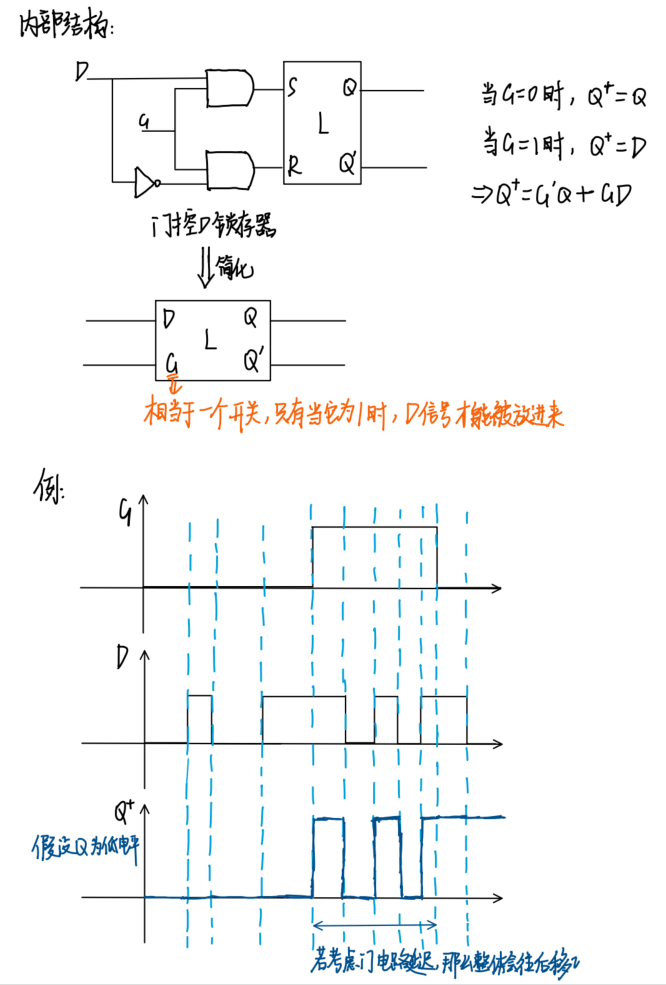 内部结构:
D
G
S Q
L
R Q'
当G=0时, Q⁺=Q
当G=1时, Q⁺=D
⇒Q⁺=G'Q+GD
门控D锁存器
简化
D Q
L
G Q'
相当于一个开关,只有当它为1时,D信号才能被放进来
例:
G
D
Q⁺
假设Q为低电平
若考虑门电路延迟,那么整体会往后移